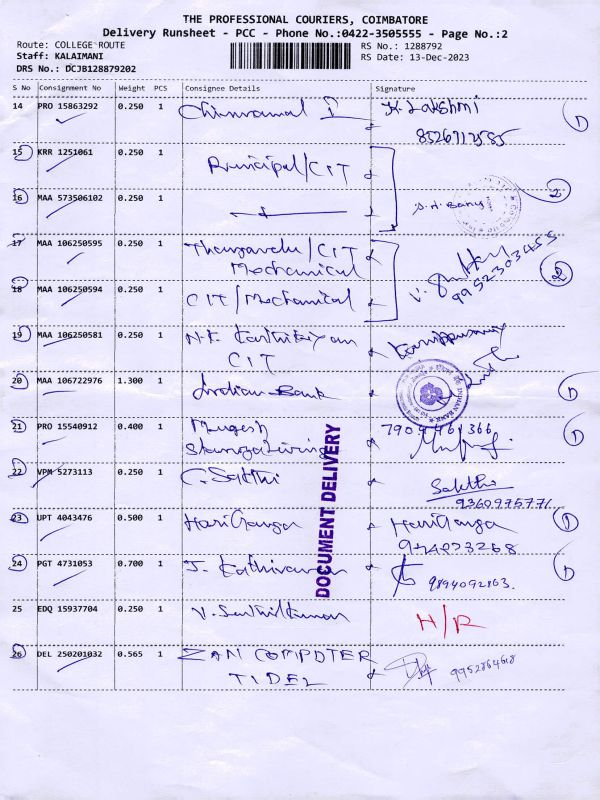 THE PROFESSIONAL COURIERS, COIMBATORE
Delivery Runsheet - PCC - Phone No.:0422-3505555 - Page No.:2
Route: COLLEGE ROUTE
RS No.: 1288792
Staff: KALAIMANI
RS Date: 13-Dec-2023
DRS No.: DCJB128879202
S No Consignment No Weight PCS Consignee Details Signature
14 PRO 15863292 0.250 1 K. Lakshmi
8526712585
15 KRR 1251061 0.250 1 Principal/CIT
16 MAA 573506102 0.250 1
2
17 MAA 106250595 0.250 1 Thangavelu/CIT
Mechanical
9952303455
18 MAA 106250594 0.250 1 CIT/Mechanical
2
19 MAA 106250581 0.250 1 Karthikeyan
CIT
20 MAA 106722976 1.300 1 Indian Bank
INDIAN BANK
21 PRO 15540912 0.400 1 Mugesh
7904461366
22 VPM 5273113 0.250 1 C. Sakthi
Sakthi
9360975771
23 UPT 4043476 0.500 1 Hari Ganga Hari Ganga
24 PGT 4731053 0.700 1 J. Kathiravan 9894092863.
25 EDQ 15937704 0.250 1 V. Senthilkumar H/R
26 DEL 250201032 0.565 1 ZAN COMPUTER
TIDEL
9952864618
DOCUMENT DELIVERY